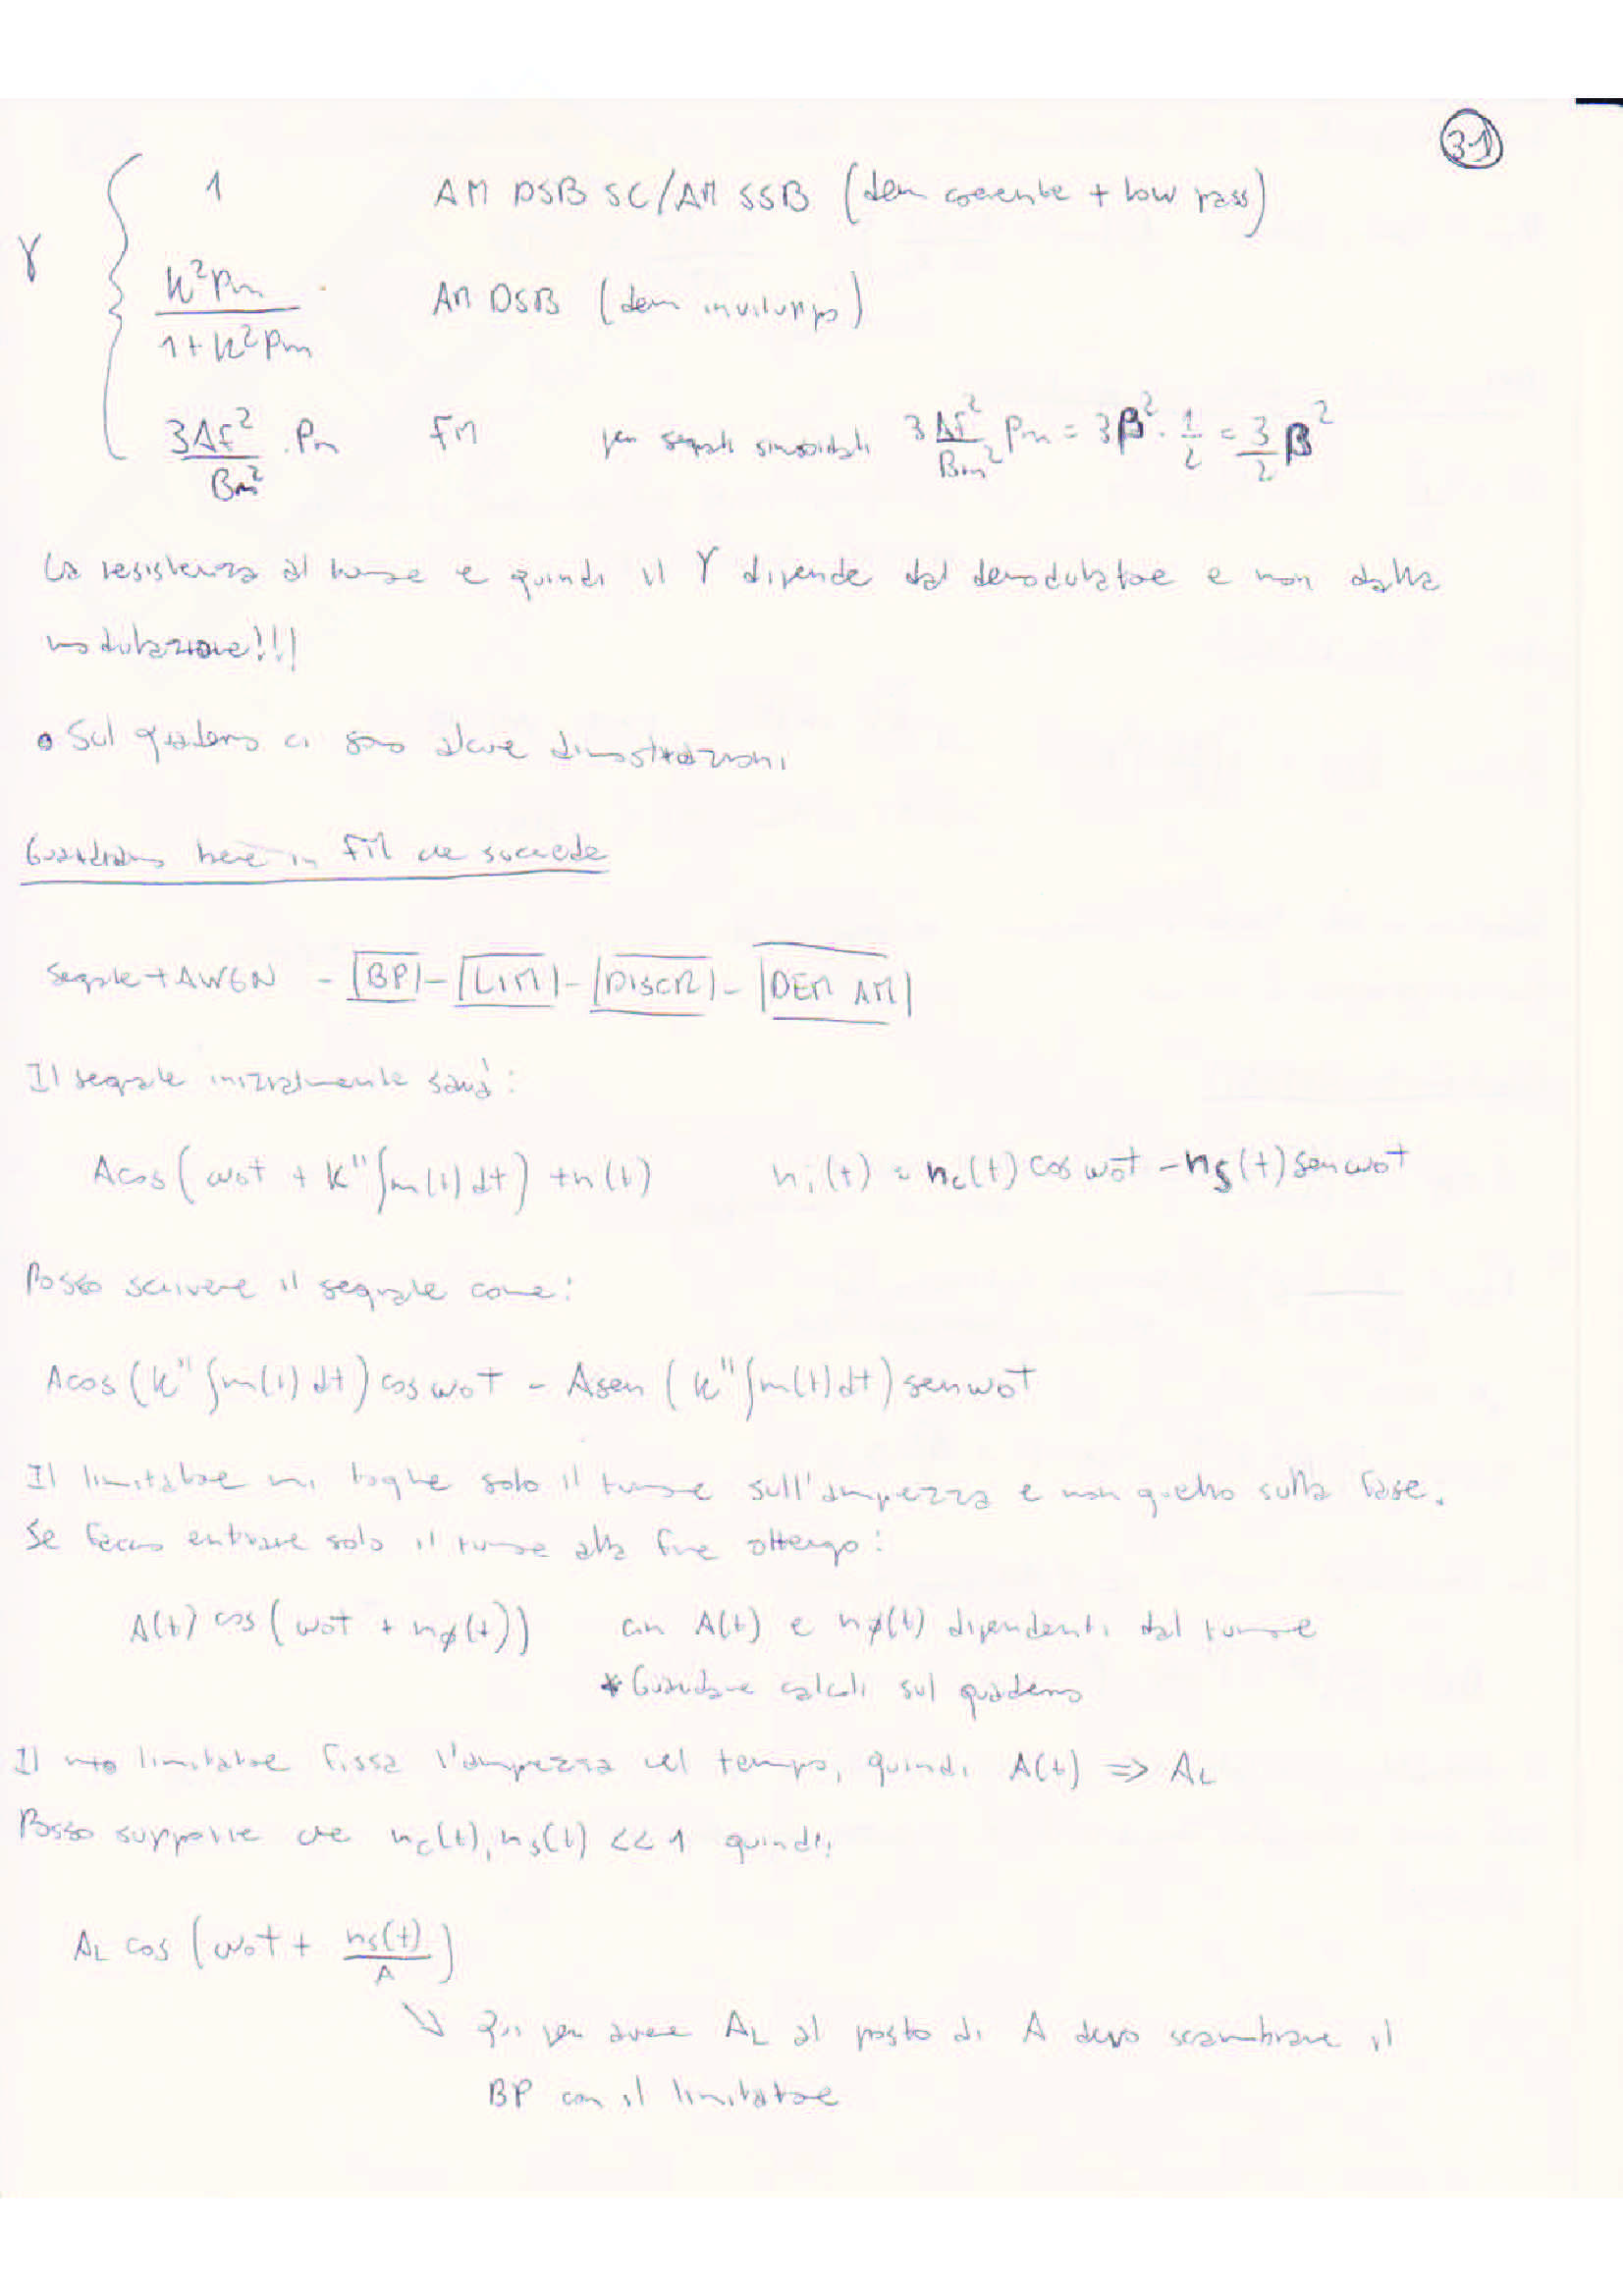 31
γ { 1 AM DSB SC/AM SSB (dem coerente + low pass)
K²Pm / 1+K²Pm AM DSB (dem inviluppo)
3Δf² / Bm² · Pm FM per segnali sinusoidali 3 Δf² / Bm² Pm = 3β² · 1/2 = 3/2 β²
La resistenza al rumore e quindi il γ dipende dal demodulatore e non dalla
modulazione!!!
• Sul quaderno ci sono alcune dimostrazioni
Guardiamo bene in FM che succede
Segnale + AWGN - |BP| - |LIM| - |DISCR| - |DEM AM|
Il segnale inizialmente sarà:
Acos(ω₀t + K"∫m(t)dt) + n(t) nᵢ(t) = n_c(t) cos ω₀t - n_s(t) sen ω₀t
Posso scrivere il segnale come:
Acos(K"∫m(t)dt) cos ω₀t - Asen(K"∫m(t)dt) sen ω₀t
Il limitatore mi toglie solo il rumore sull'ampiezza e non quello sulla fase.
Se faccio entrare solo il rumore alla fine ottengo:
A(t) cos(ω₀t + nø(t)) con A(t) e nø(t) dipendenti dal rumore
* Guardare calcoli sul quaderno
Il mio limitatore fissa l'ampiezza nel tempo, quindi A(t) => A_L
Posso supporre che n_c(t), n_s(t) << 1 quindi:
A_L cos(ω₀t + n_s(t)/A)
↘ Qui per avere A_L al posto di A devo scambiare il
BP con il limitatore